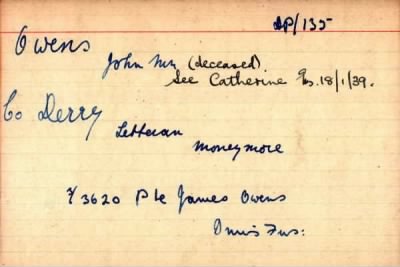 DP/135
Owens
John Mr (deceased)
See Catherine 18/1/39.
Co Derry
Letteran
Moneymore
3620 Pte James Owens
Innis Fus: